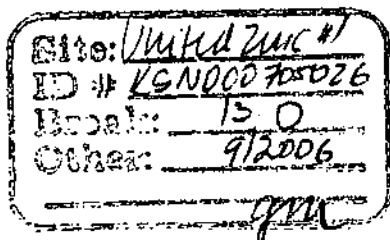 Site: United Zinc #1
ID # KSN000705026
Break: 13.0
Other: 9/2006